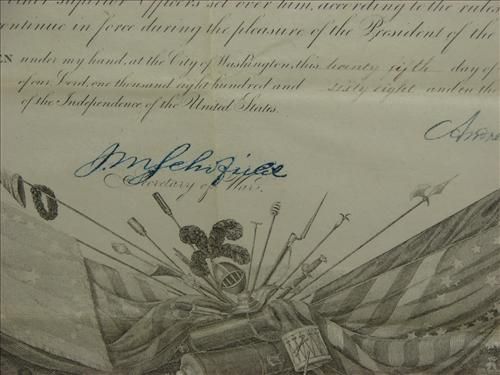 other Superior Officers set over him, according to the rules
continue in force during the pleasure of the President of the
EN under my hand, at the City of Washington, this twenty fifth day of
of our Lord, one thousand eight hundred and sixty eight and in the
of the Independence of the United States.
J M Schofield
Secretary of War.